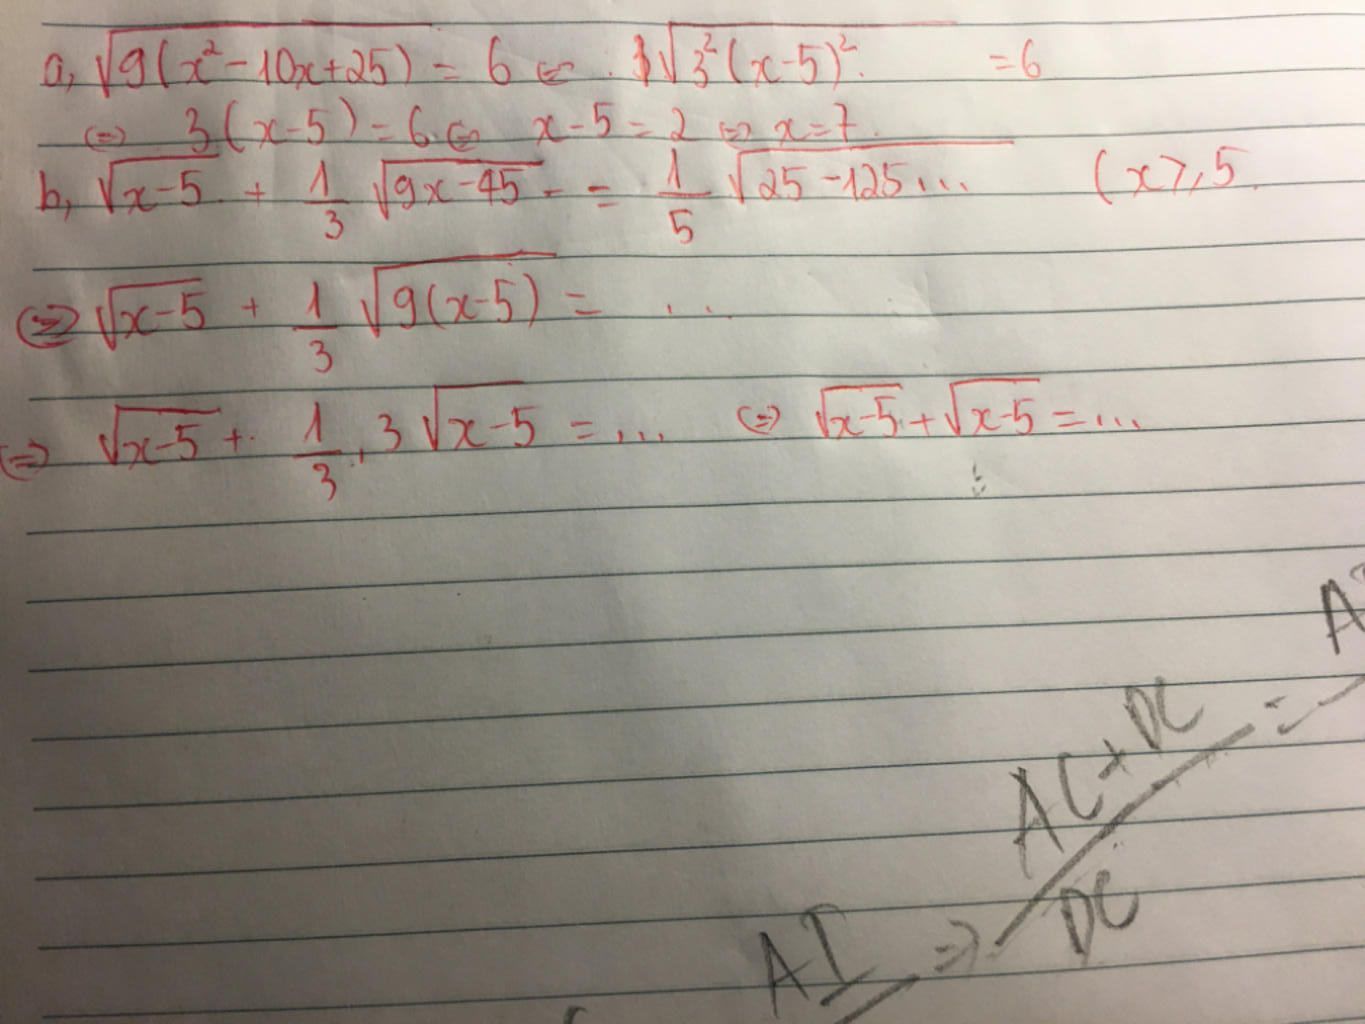 a, √9(x²-10x+25) = 6 ⇔ √3²(x-5)² = 6
⇔ 3(x-5) = 6 ⇔ x-5 = 2 ⇔ x=7.
b, √x-5 + 1/3 √9x-45 = 1/5 √25-125... (x ≥ 5
⇔ √x-5 + 1/3 √9(x-5) = ...
⇔ √x-5 + 1/3 . 3√x-5 = ... ⇔ √x-5 + √x-5 = ...
AC+DC/DC =
AI ⇒